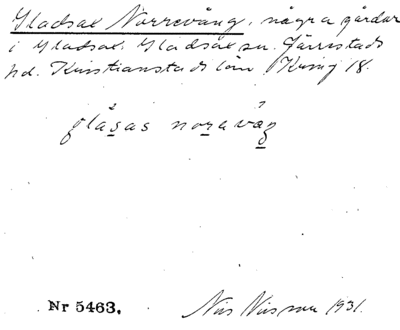 Gladsax Norrevång, några gårdar
i Gladsax. Gladsax sn. Järrestads
hd. Kristianstads län
glasas noravaŋ
Nr 5463. Nils Nilsson 1931.